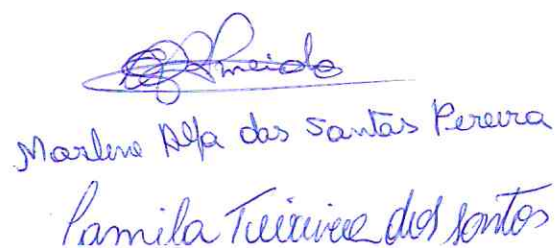 Almeida
Marlene Alfa das Santas Pereira
Pamila Teixeira dos Santos